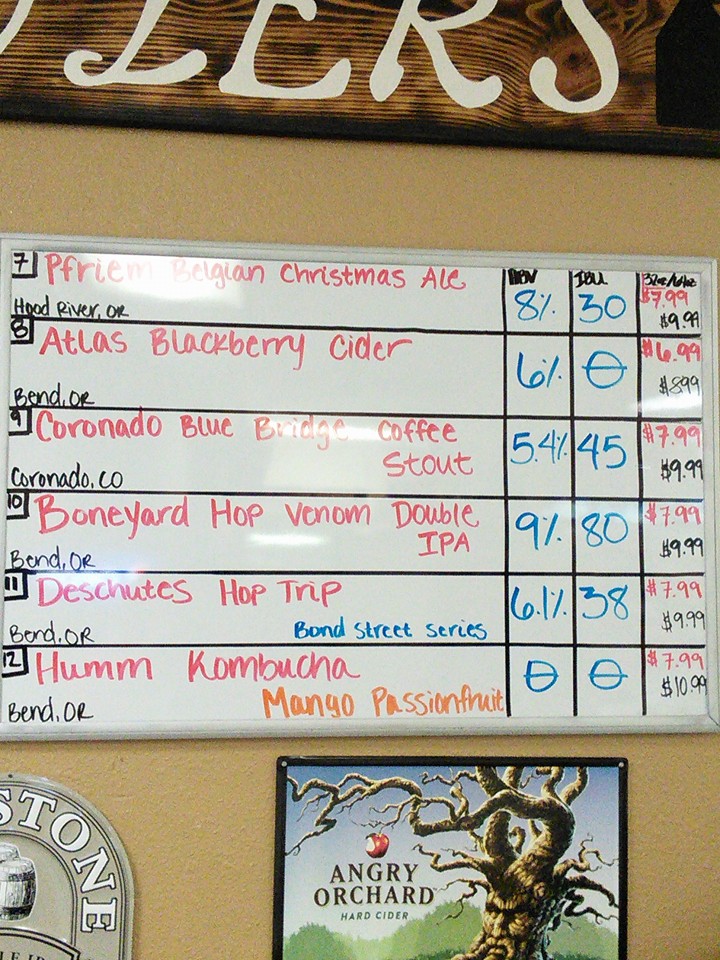 IERS
7 Pfriem Belgian Christmas Ale
ABV IBU 32oz/64oz
Hood River, OR
8% 30 $7.99
$9.99
8 Atlas Blackberry Cider
Bend, OR
6% 0 $6.99
$8.99
9 Coronado Blue Bridge Coffee
Stout
Coronado, CO
5.4% 45 $7.99
$9.99
10 Boneyard Hop Venom Double
IPA
Bend, OR
9% 80 $7.99
$9.99
11 Deschutes Hop Trip
Bend, OR
Bond Street Series
6.1% 38 $7.99
$9.99
12 Humm Kombucha
Mango Passionfruit
Bend, OR
0 0 $7.99
$10.99
STONE
ANGRY
ORCHARD
HARD CIDER